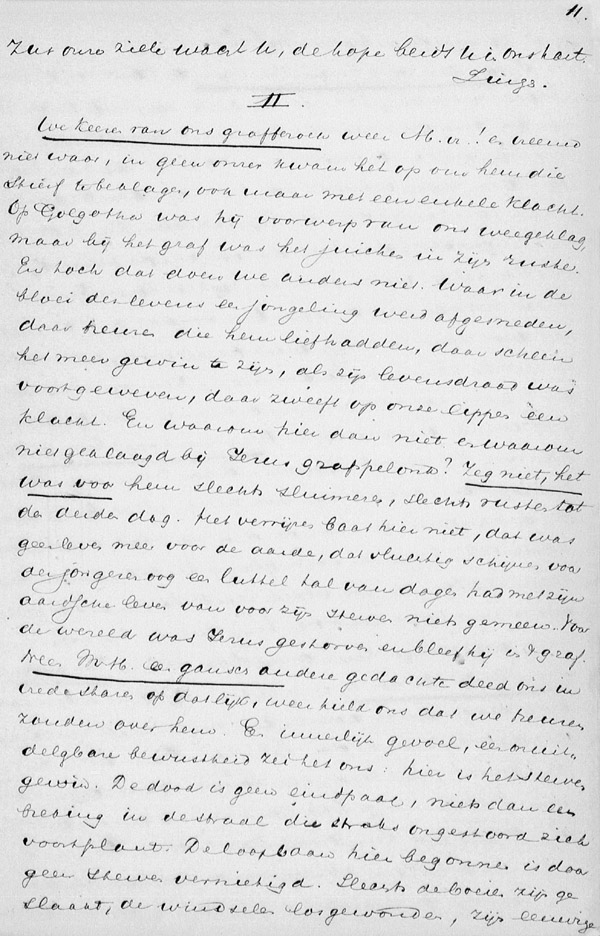 11.
Zur onze ziele wacht U, de hope beidt U in ons hart.
Zings.
II.
We keeren van ons grafbezoek weer M. vr! en vreemd
niet waar, in geen onzer kwam het op om hem die
stierf te beklagen, ook maar met een enkele klacht.
Op Golgotha was hij voorwerp van ons weegeklag,
maar bij het graf was het juichen in zijn ruste.
En toch dat doen we anders niet. Waar in de
bloei des levens een jongeling werd afgesneden,
daar treuren die hem liefhadden, daar scheen
het meer gewin te zijn, als zijn levensdraad was
voortgeweven, daar zweeft op onze lippen een
klacht. En waarom hier dan niet en waarom
niet geklaagd bij Jezus grafspelonk? Zeg niet, het
was voor hem slechts sluimeren, slechts rusten tot
den derden dag. Het verrijzen baat hier niet, dat was
geen leven meer voor de aarde, dat vluchtig schijnen voor
der jongeren oog een luttel tal van dagen had met zijn
aardsche leven van voor zijn sterven niets gemeen. Voor
de wereld was Jezus gestorven en bleef hij in 't graf.
Neen M. H. een gansch andere gedachte deed ons in
vrede staren op dat lijk, weerhield ons dat we treuren
zouden over hem. Een innerlijk gevoel, een onuit-
delgbare bewustheid zei het ons: hier is het sterven
gewin. De dood is geen eindpaal, niets dan een
breking in de straal die straks ongestoord zich
voortplant. De loopbaan hier begonnen is door
geen sterven vernietigd. Slechts de boeien zijn ge
slaakt, de windselen losgewonden, zijn eeuwige